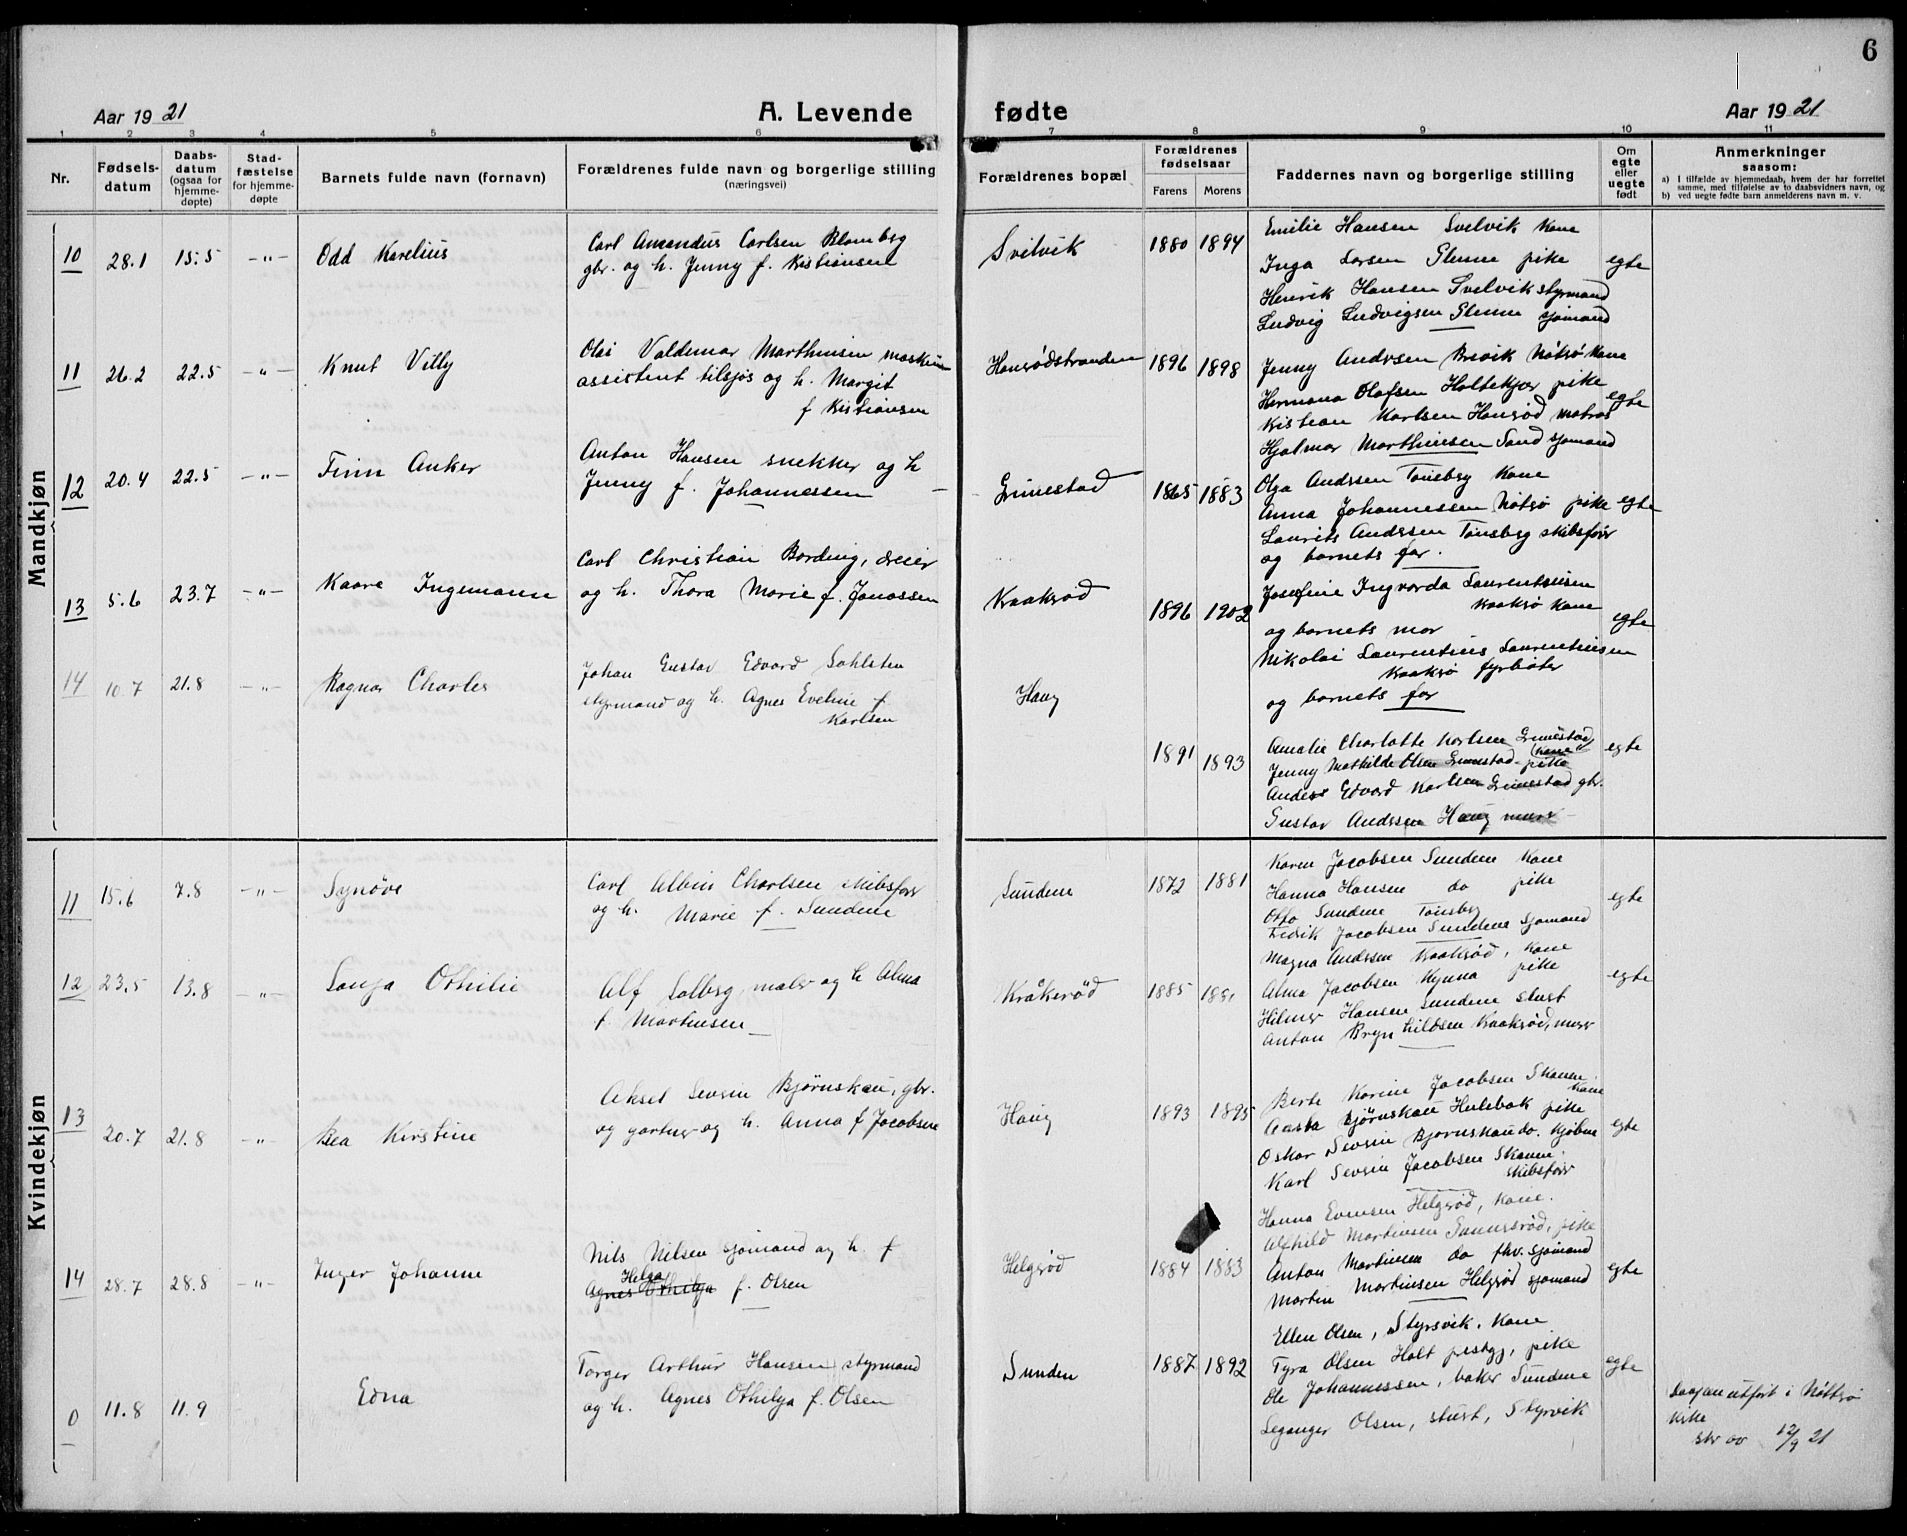 6
Aar 1921
A. Levende fødte
Aar 1921
1 2 3 4 5 6 7 8 9 10 11
Nr.
Fødsels-
datum
Daabs-
datum
(ogsaa for
hjemme-
døpte)
Stad-
fæstelse
for hjemme-
døpte
Barnets fulde navn (fornavn)
Forældrenes fulde navn og borgerlige stilling
(næringsvei)
Forældrenes bopæl
Forældrenes
fødselsaar
Farens
Morens
Faddernes navn og borgerlige stilling
Om
egte
eller
uegte
født
Anmerkninger
saasom:
a) I tilfælde av hjemmedaab, hvem der har forrettet
samme, med tilføielse av to daabsvidners navn, og
b) ved uegte fødte barn anmelderens navn m. v.
Mandkjøn
10 28.1 15.5 -"- Odd Karelius
Carl Amandus Carlsen Blomberg
gbr. og h. Jenny f. Kristiansen
Svelvik 1880 1894
Emilie Hansen Svelvik Kone
Inga Larsen Glenne pike
Henrik Hansen Svelvik styrmand
Ludvig Ludvigsen Glenne sjømand
egte
11 26.2 22.5 -"- Knut Villy
Olai Valdemar Marthinsen maskin
assistent tilsjøs og h. Margit
f Kristiansen
Hansrødstranden 1896 1898
Jenny Andersen Brevik Nøtrø Kone
Hermana Olafsen Holtekjær pike
Kristian Karlsen Hansrød matros
Hjalmar Marthinsen Sand sjømand
egte
12 20.4 22.5 -"- Finn Anker
Anton Hansen snekker og h
Jenny f. Johannessen
Grimestad 1865 1883
Olga Andersen Tønsberg Kone
Anna Johannessen Nøtrø pike
Laurits Andersen Tønsberg skibsfører
og barnets far.
egte
13 5.6 23.7 -"- Kaare Ingemann
Carl Christian Bording, dreier
og h. Thora Marie f. Jonassen
Kraakrød 1896 1902
Josefine Ingvarda Laurentsen
Kraakrø Kone
og barnets mor
Nikolai Laurentius Laurentiusen
Kraakrø fyrbøter
og barnets far
egte
14 10.7 21.8 -"- Ragnar Charles
Johan Gustav Edvard Sahlsten
styrmand og h. Agnes Eveline f
Karlsen
Haug 1891 1893
Amalie Charlotte Karlsen Grimestad
(Kone)
Jenny Mathilde Olsen Grimestad pike
Anders Edvard Karlsen Grimestad gbr.
Gustav Andersen Haug murer
egte
Kvindekjøn
11 15.6 7.8 -"- Synøve
Carl Albin Charlsen skibsfører
og h. Marie f. Sundene
Sundene 1872 1881
Karen Jacobsen Sundene Kone
Hanna Hansen do pike
Otto Sundene Tønsberg
Fredrik Jacobsen Sundene sjømand
egte
12 23.5 13.8 -"- Sonja Othilie
Alf Solberg, maler og h Alma
f. Martinsen
Kråkerød 1885 1891
Magna Andersen Kraakrød, Kone
Alma Jacobsen Kynna pike
Hilmer Hansen Sundene stuert
Anton Bryn Kraakrød, murer
egte
13 20.7 21.8 -"- Bea Kirstine
Aksel Severin Bjørnskau, gbr.
og gartner og h. Anna f Jacobsen
Haug 1893 1895
Berte Karine Jacobsen Skauen
Kone
Aasta Bjørnskau Herlebak pike
Oskar Severin Bjørnskau do. kjøbm
Karl Severin Jacobsen Skauen
skibsfører
egte
14 28.7 28.8 -"- Inger Johanne
Nils Nilsen sjømand og h. f
Helga
Agnes Othilja f. Olsen
Helgerød 1884 1883
Hanna Evensen Helgerød, Kone.
Alfhild Martinsen Sannerød, pike
Anton Martinsen do fhv. sjømand
Marten Martinsen Helgerød sjømand
egte
0 11.8 11.9 Edna
Torger Arthur Hansen styrmand
og h. Agnes Othilja f. Olsen
Sunden 1887 1892
Ellen Olsen, Styrsvik, Kone
Tyra Olsen Holt prestgj, pike
Ole Johannessen, baker Sundene
Leganger Olsen, stuert, Styrvik
egte
Daapen utført i Nøtterø
Kirke
12/9 21